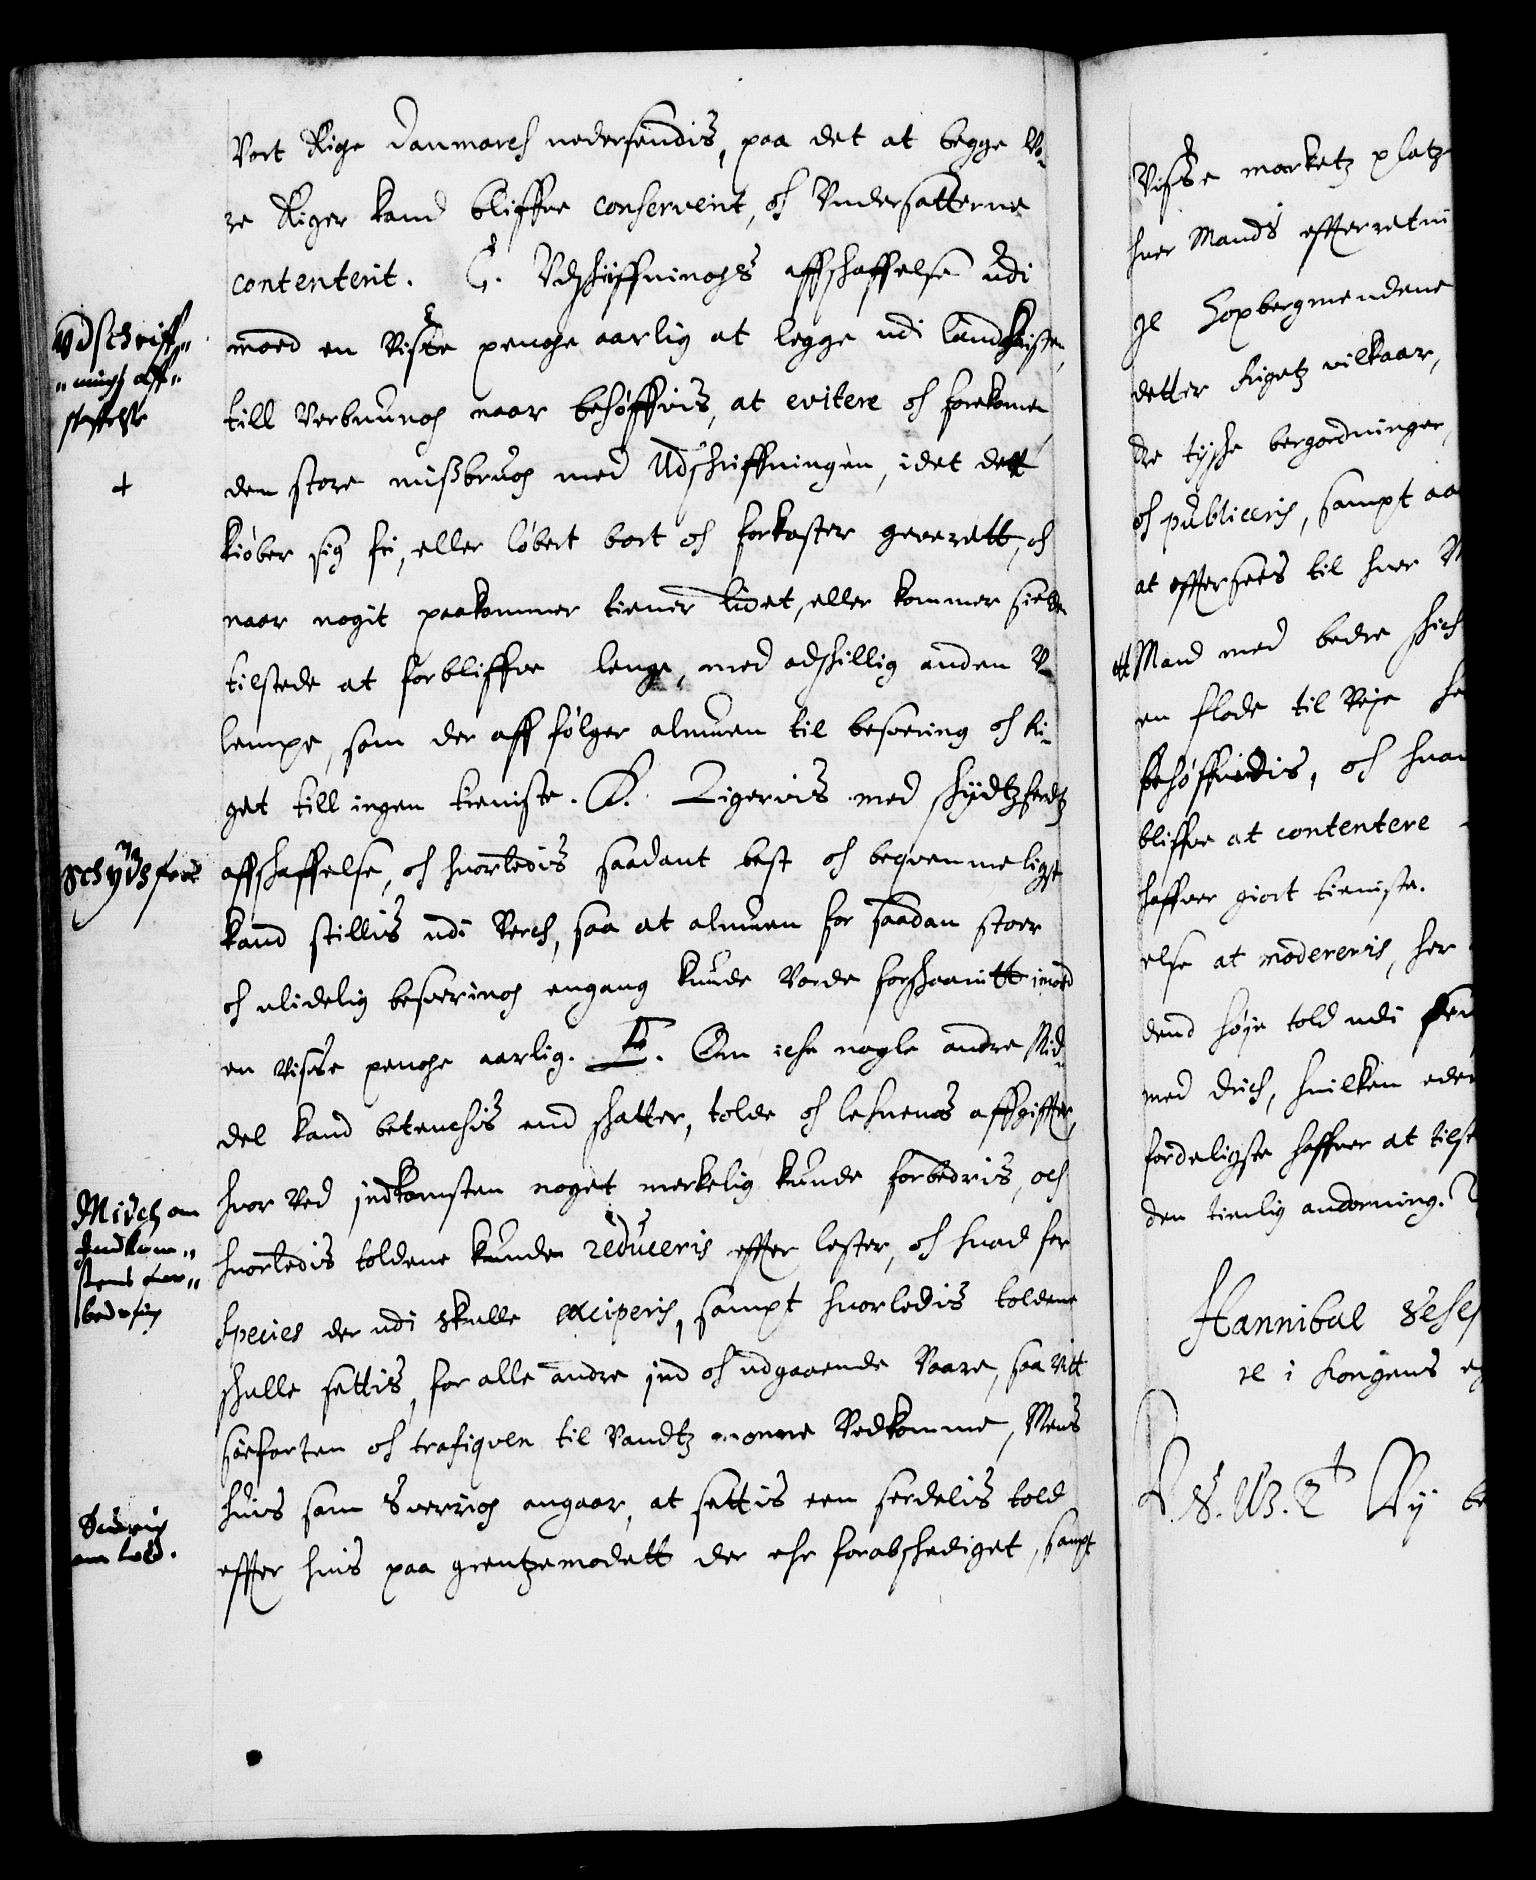 Vort Rige Danmarch nedersendis, paa det at begge Vo-
re Riger kand bliffve conserverit, och Vndersatterne
contenterit. C. Vdschriffningens affschaffelse udi
moed en Visse penge aarlig at legge udi landkisten,
till Verbnung naar behøffvis, at evitere och forekomme
den store mißbrug med Udschriffningen, idet dett
kiøber sig fri, eller løbert bort och forkaster geverett, och
naar nogit paakommer tienir lidet, eller kommer sielden
tilstede at forbliffve lenge, med adschillig anden V-
lempe, som der aff følger almuen til besvering och Ri-
get till ingen tieniste. D. Ligervis med schydtzferdtz
affschaffelse, och huorledis saadant best och beqvemmeligst
kand stillis udi Verch, saa at almuen for saadan stoer
och ulidelig besvering engang kunde Vorde forschaanitt imod
en Visse penge aarlig. E. Om iche nogle andre Mid-
del kand betenchis end schatter, tolde och lehnens affgiffter,
huor Ved indkomsten noget merkelig kunde forbedris, och
huorledis toldene kunde reduceris effter lester, och huad for
species der udi skulle exciperis, sampt huorledis toldene
schulle settis, for alle andre ind och udgaaende Vaare, saa Vitt
søefarten och trafiqven til Vandtz monne Vedkomme, Mens
huis som Sverrig angaar, at settis een serdelis told
effter huis paa grentzemodett der ehr forabschediget, sampt
Vdschriff-
nings aff-
schaffelse
+
Schydsferd
Middel om
Indkom-
stens for-
bedring
Sverig
om told.
Visse marketz platz
huer Mands efterretni
ge
detter Rigetz vilkaar,
dre tyske bergordninger,
och publiceris, sampt aa
at efftersees til huer
Mand med bedre schich
en flode til Veje
behøffvedis, och huo
bliffve at contentere
haffver giort tieniste.
else at modereris, her
dend høje told udi
med drich, huilken eder
fordeligste haffver at tilst
den tienlig anordning.
Hannibal Sehes
re i Kongens
Vy be